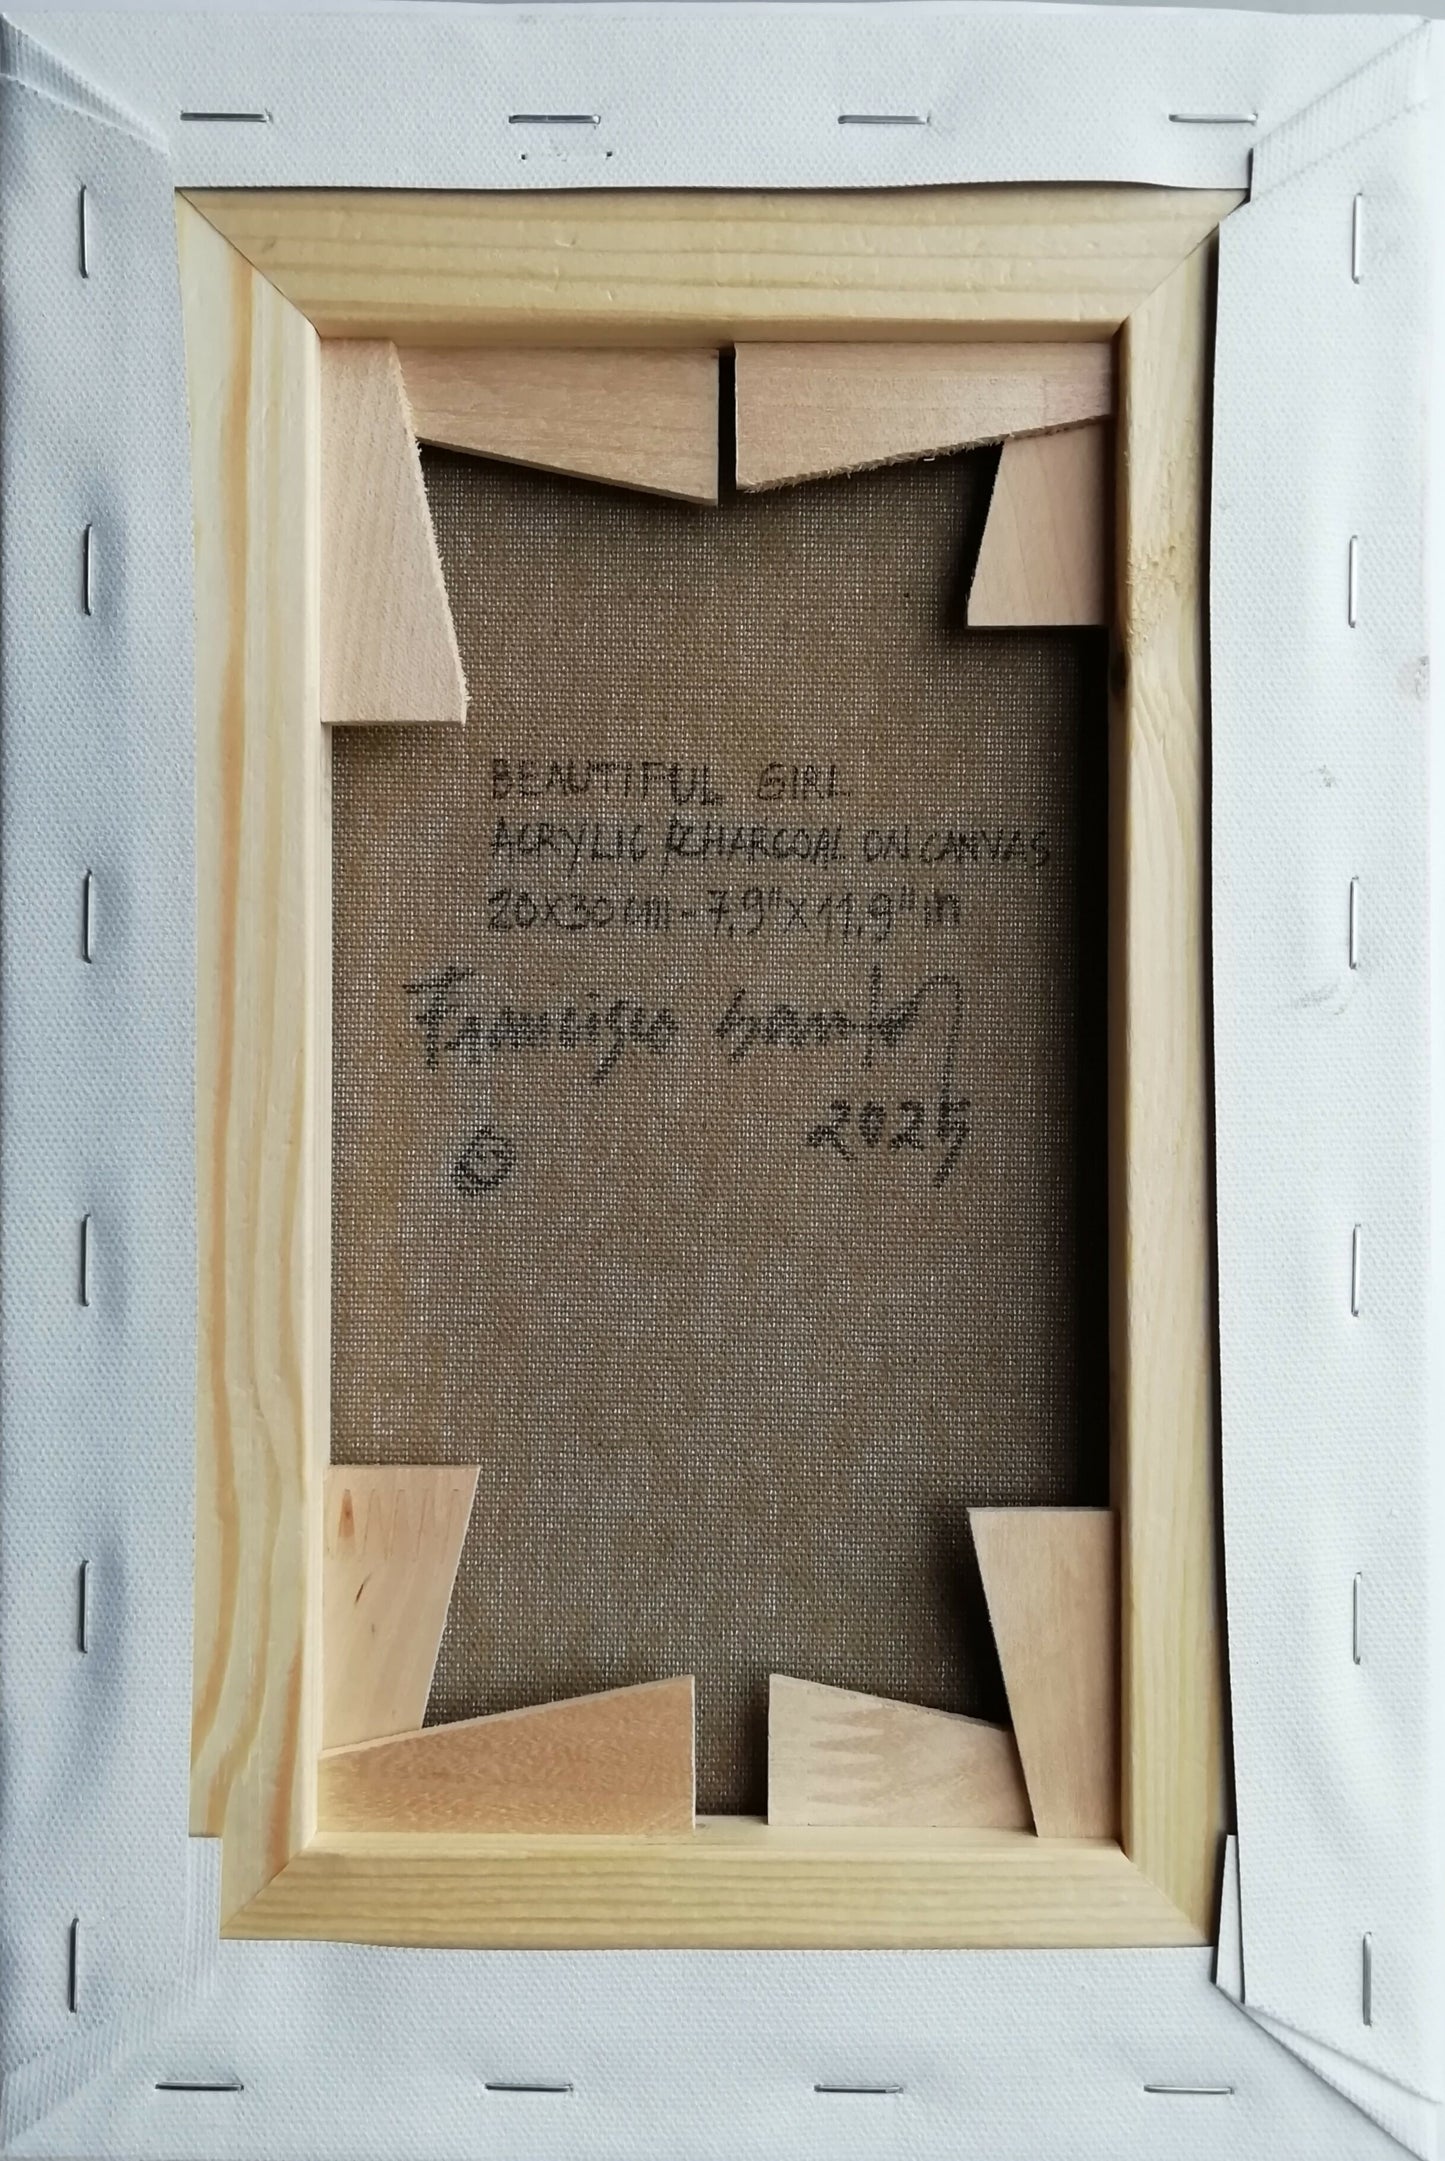 BEAUTIFUL GIRL
ACRYLIC /CHARCOAL ON CANVAS
20x30 cm - 7.9" x 11.9" in
Francisco Santos
2025